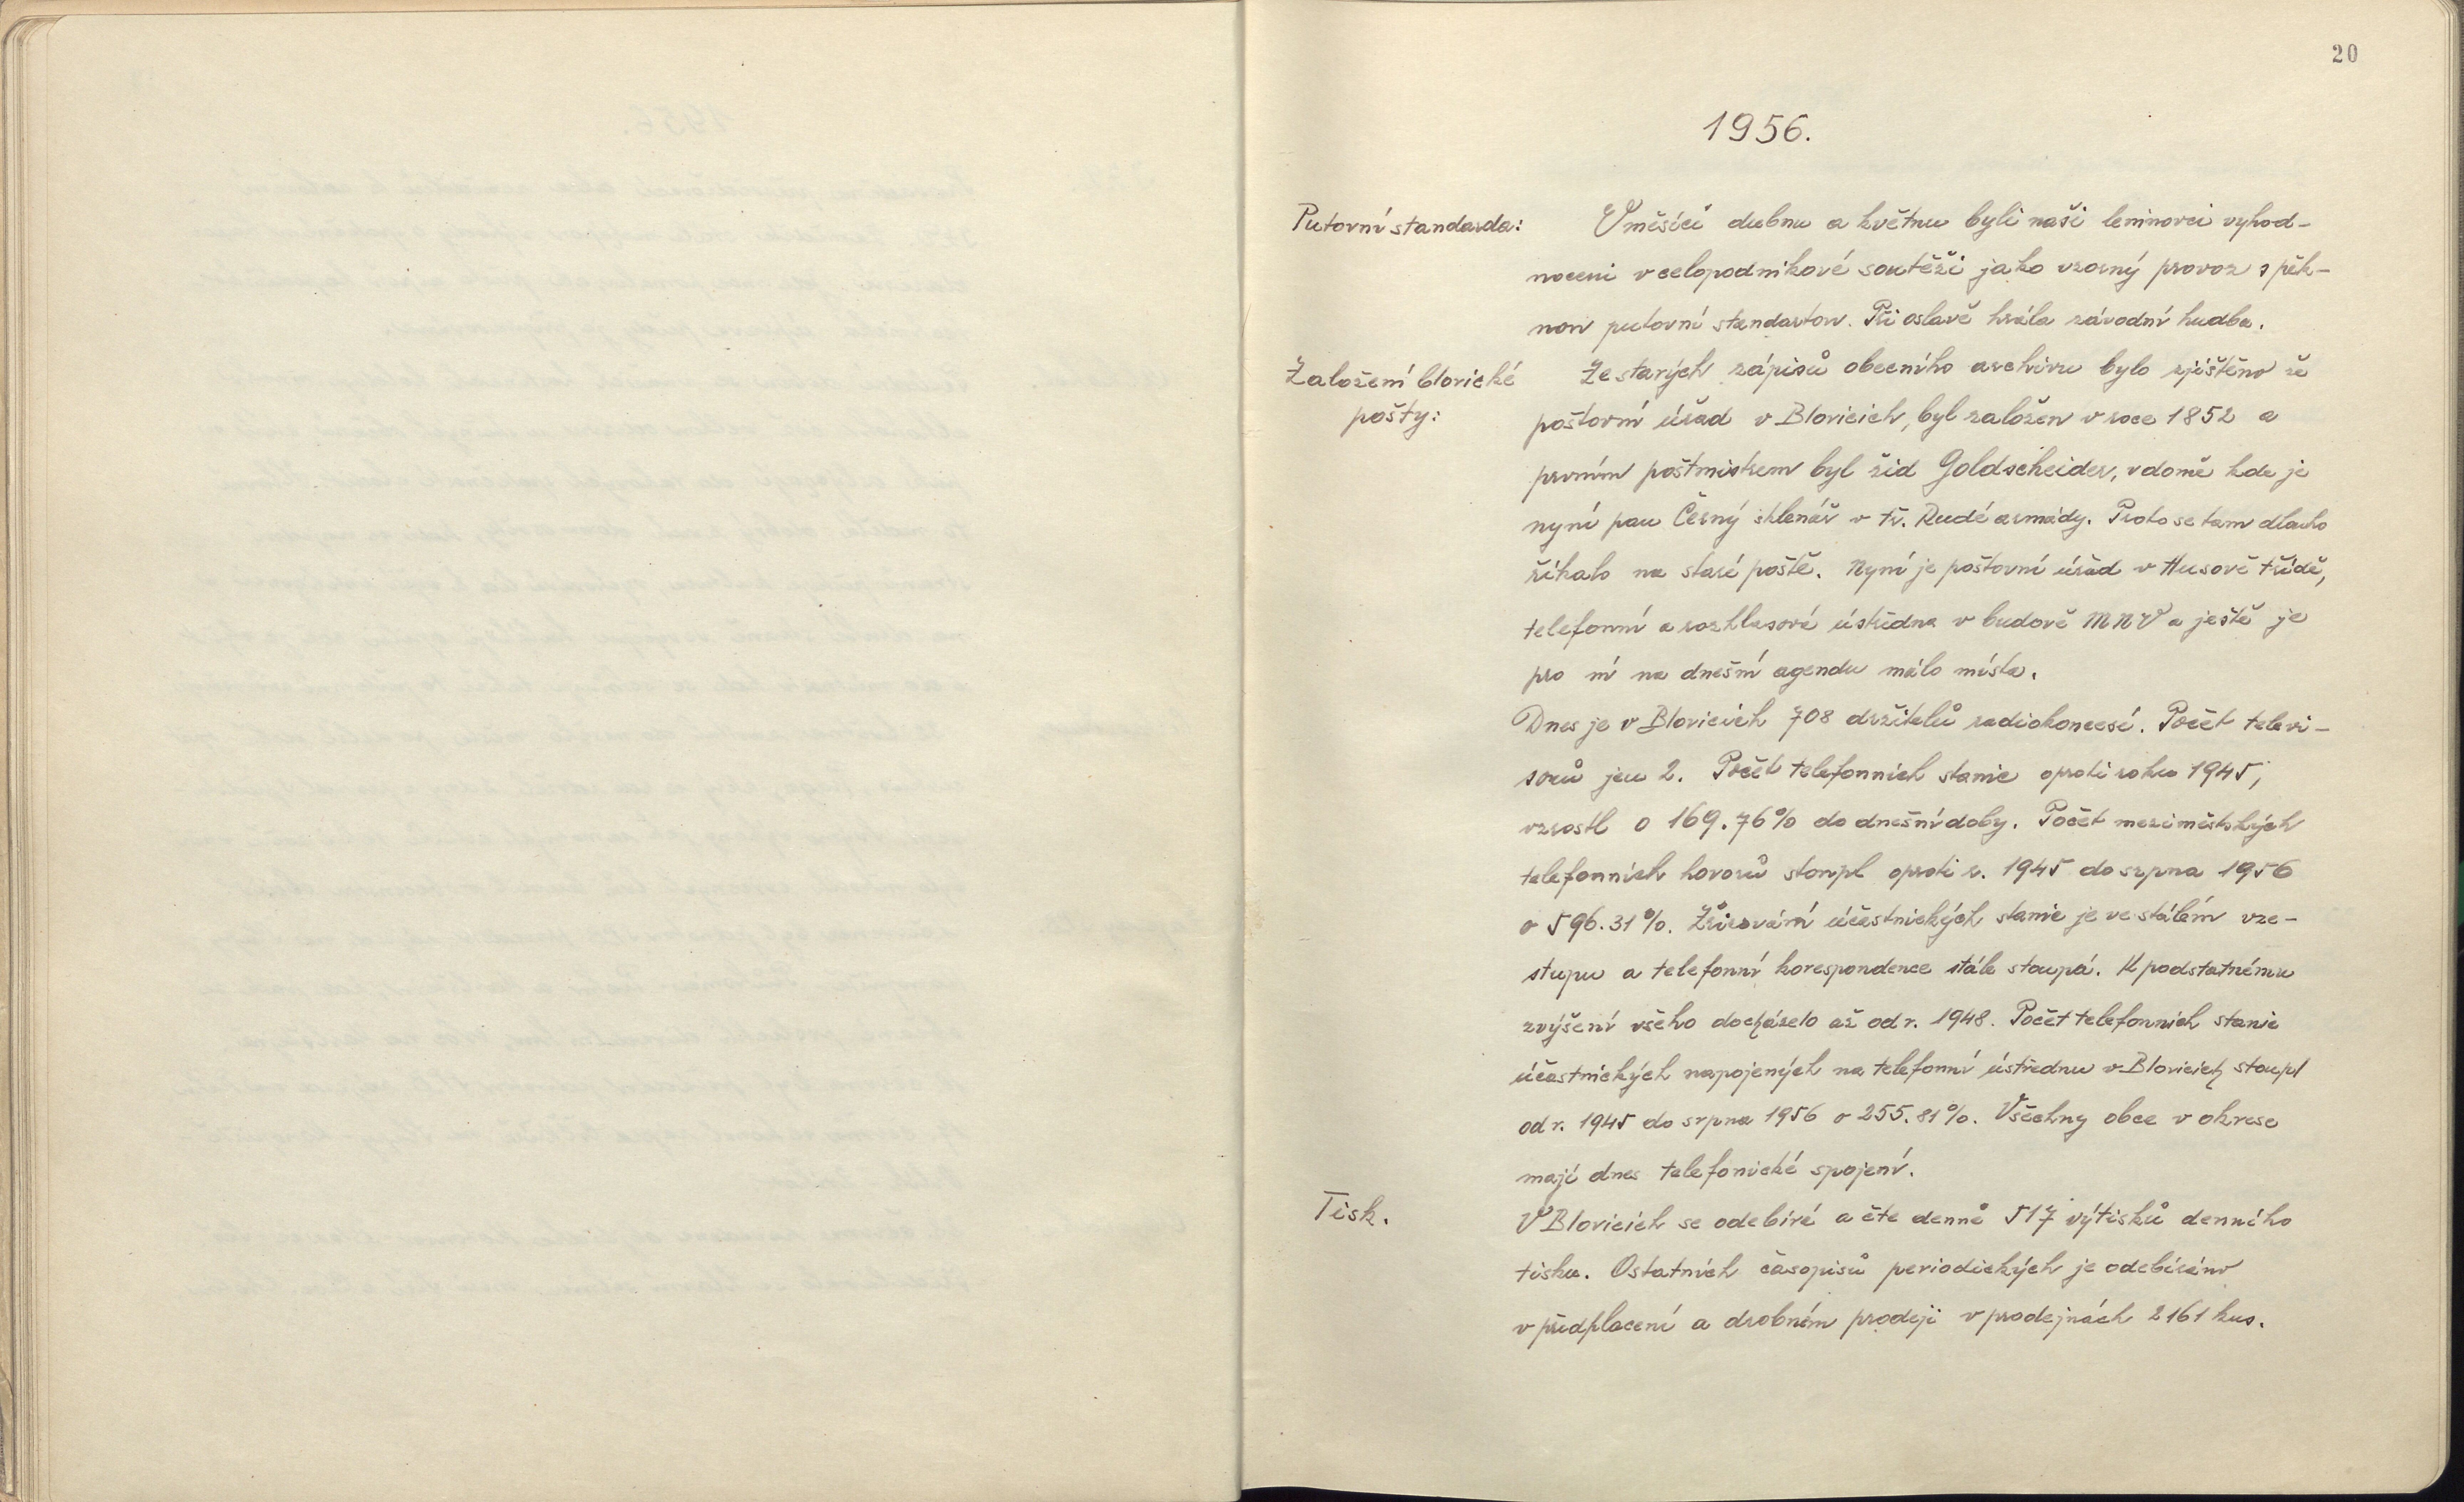 20
1956.
Putovní standarda:
V měsíci dubnu a květnu byli naši leninovci vyhod-
noceni v celopodnikové soutěži jako vzorný provoz s pěk-
nou putovní standartou. Při oslavě hrála závodní hudba.
Založení blovické
pošty:
Ze starých zápisů obecního archivu bylo zjištěno že
poštovní úřad v Blovicích, byl založen v roce 1852 a
prvním poštmistrem byl žid Goldscheider, v domě kde je
nyní pan Černý sklenář v tř. Rudé armády. Proto se tam dlouho
říkalo na staré poště. Nyní je poštovní úřad v Husově třídě,
telefonní a rozhlasová ústředna v budově MNV a ještě je
pro ní na dnešní agendu málo místa.
Dnes je v Blovicích 708 držitelů radiokoncesí. Počet televi-
sorů jen 2. Počet telefonních stanic oproti roku 1945,
vzrostl o 169.76% do dnešní doby. Počet meziměstských
telefonních hovorů stoupl oproti r. 1945 do srpna 1956
o 596.31%. Zřizování účastnických stanic je ve stálém vze-
stupu a telefonní korespondence stále stoupá. K podstatnému
zvýšení všeho docházelo až od r. 1948. Počet telefonních stanic
účastnických napojených na telefonní ústřednu v Blovicích stoupl
od r. 1945 do srpna 1956 o 255.81%. Všechny obce v okrese
mají dnes telefonické spojení.
Tisk.
V Blovicích se odebírá a čte denně 517 výtisků denního
tisku. Ostatních časopisů periodických je odebíráno
v předplacení a drobném prodeji v prodejnách 2161 kus.